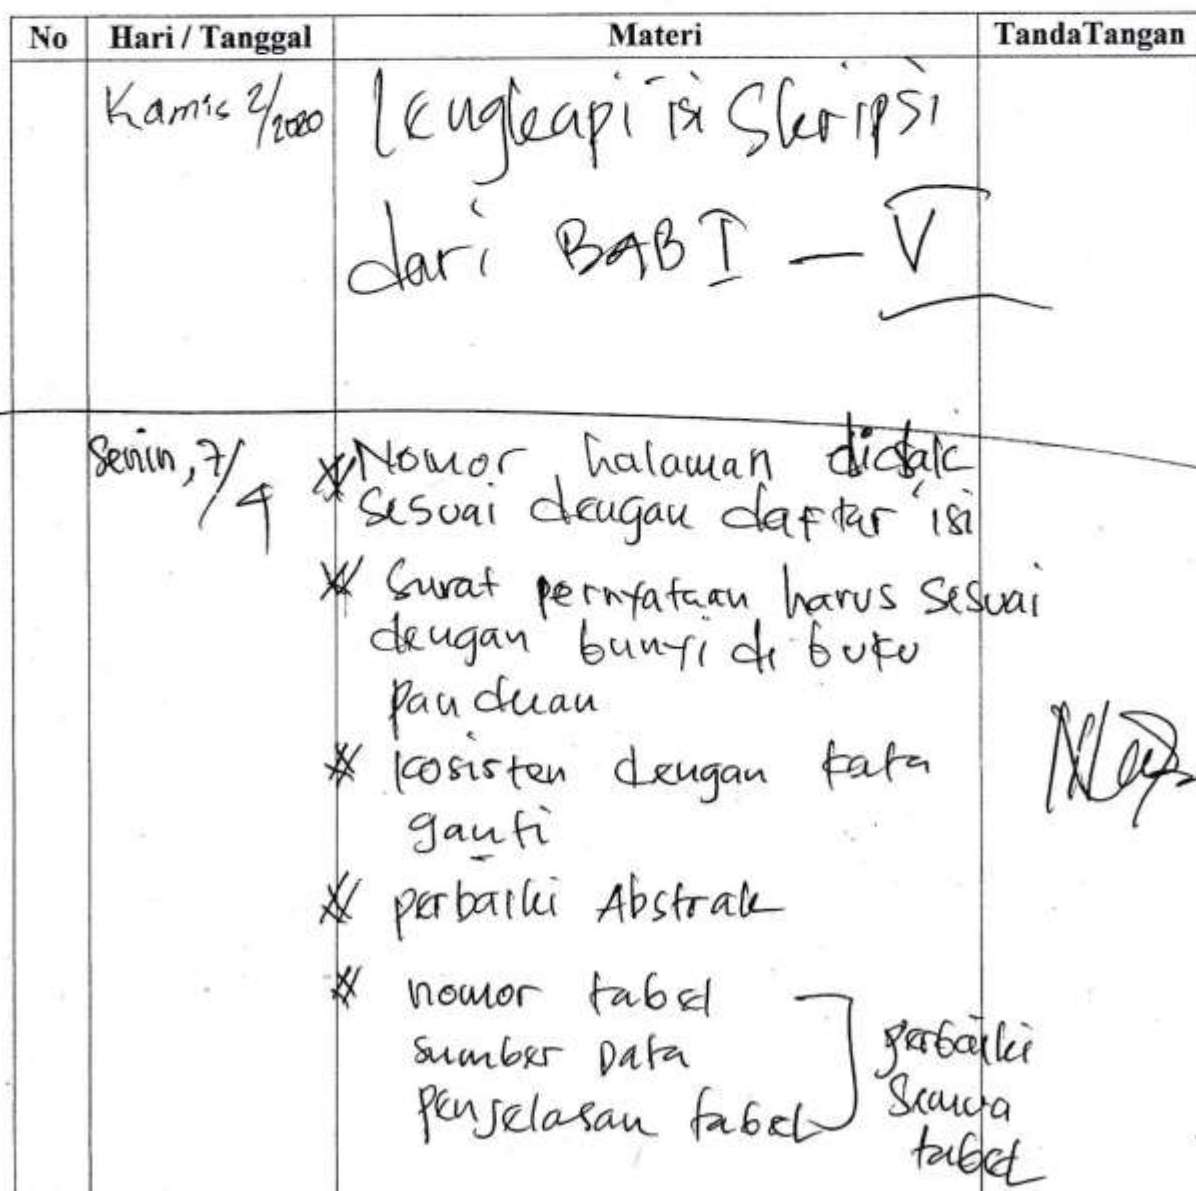 No Hari / Tanggal Materi TandaTangan
Kamis 2/2020 lengkapi isi Skripsi
dari BAB I - V
Senin, 7/4 Nomor halaman dicek
sesuai dengan daftar isi
surat pernyataan harus sesuai
dengan bunyi di buku
panduan
kosisten dengan kata
ganti
perbaiki Abstrak
nomor tabel
sumber Data
penjelasan tabel
perbaiki
semua
tabel